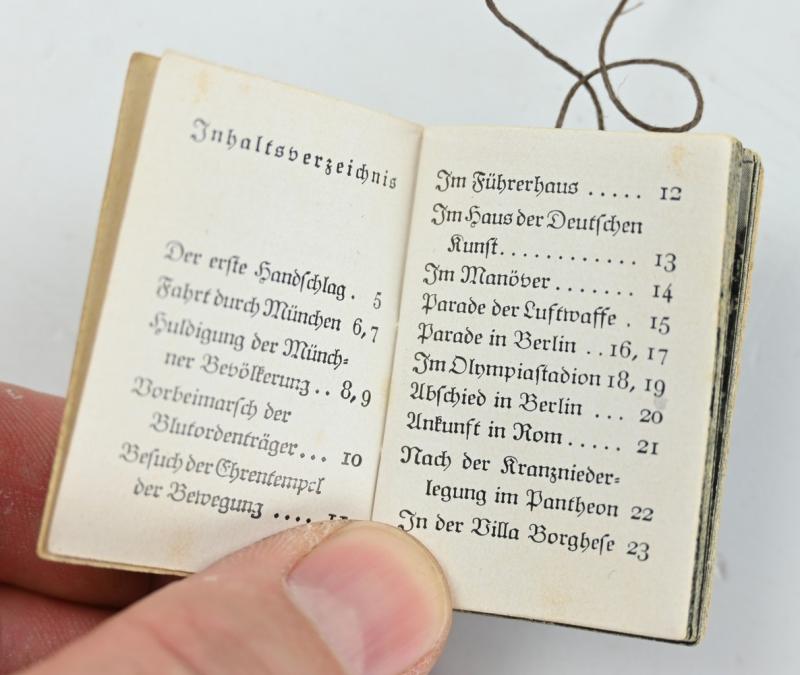 Inhaltsverzeichnis
Der erste Handschlag . 5
Fahrt durch München 6, 7
Huldigung der Münch-
ner Bevölkerung . . 8, 9
Vorbeimarsch der
Blutordenträger . . . 10
Besuch der Ehrentempel
der Bewegung . . . .
Im Führerhaus . . . . . 12
Im Haus der Deutschen
Kunst. . . . . . . . . 13
Im Manöver . . . . . . . 14
Parade der Luftwaffe . 15
Parade in Berlin . . 16, 17
Im Olympiastadion 18, 19
Abschied in Berlin . . . 20
Ankunft in Rom . . . . . 21
Nach der Kranznieder-
legung im Pantheon 22
In der Villa Borghese 23